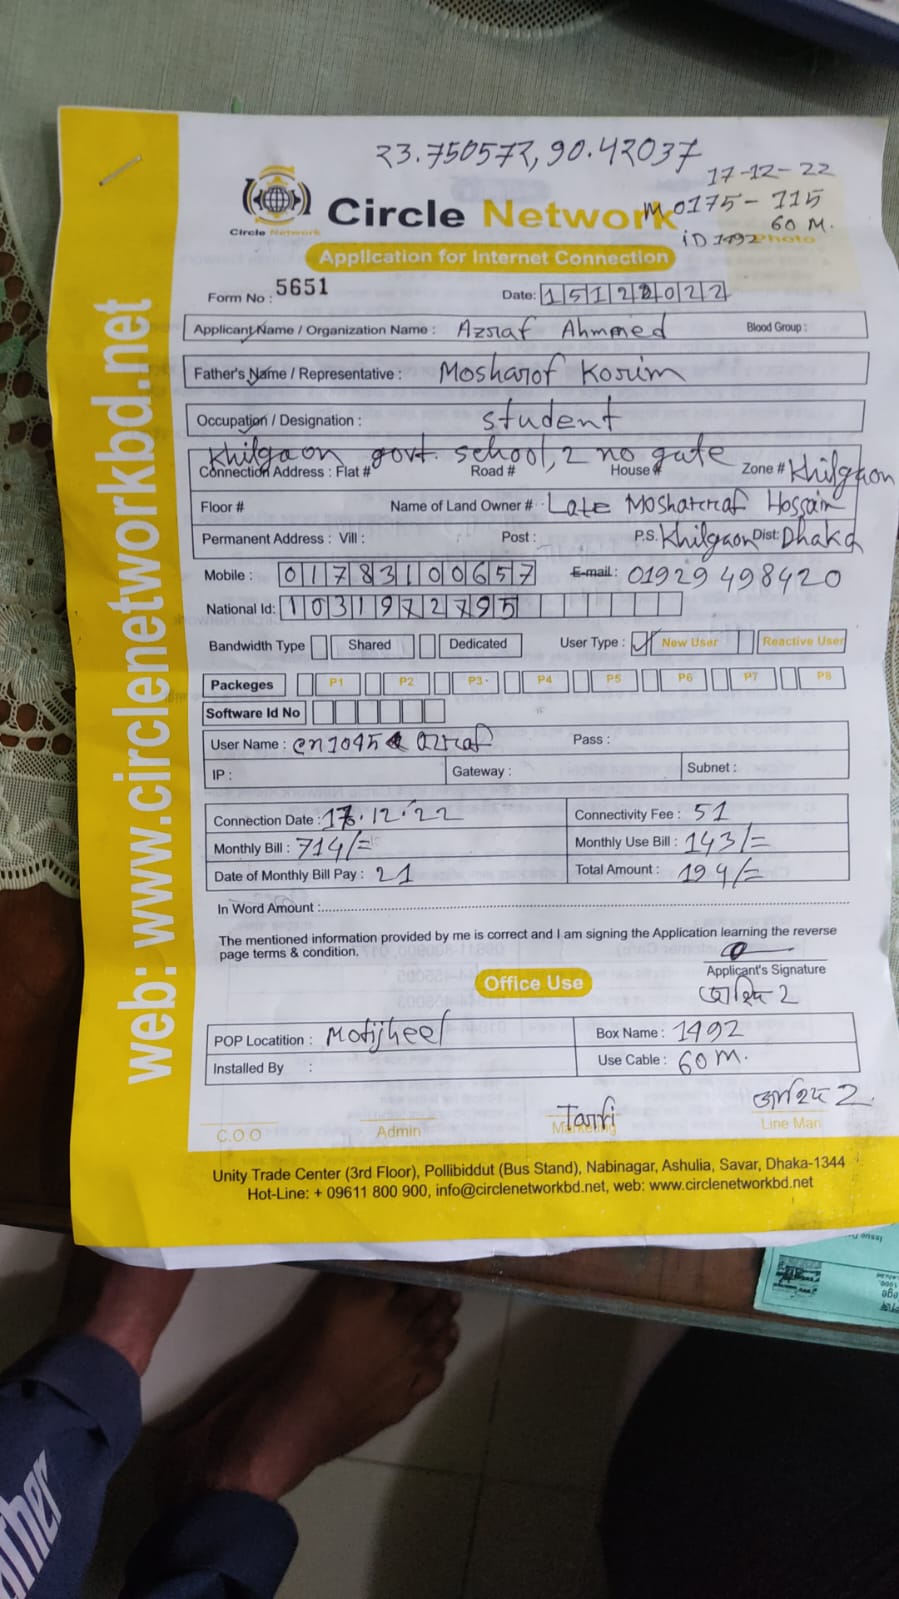 23.750572, 90.42037
17-12-22
M 0175 - 115
60 M.
iD 1492 Photo
Circle Network
Circle Network
Application for Internet Connection
Form No : 5651
Date: 15122022
Applicant Name / Organization Name : Azraf Ahmmed Blood Group :
Father's Name / Representative : Mosharof Korim
Occupation / Designation : student
Khilgaon govt. school, 2 no gate
Connection Address : Flat # Road # House # Zone # Khilgaon
Floor # Name of Land Owner # Late Mosharraf Hossain
Permanent Address : Vill : Post : P.S. Khilgaon Dist: Dhaka
Mobile : 01783100657 E-mail : 01929 498420
National Id: 1031972795
Bandwidth Type Shared Dedicated User Type : New User Reactive User
Packeges P1 P2 P3 P4 P5 P6 P7 P8
Software Id No
User Name : azraf Pass :
IP : Gateway : Subnet :
Connection Date : 17.12.22 Connectivity Fee : 51
Monthly Bill : 714/= Monthly Use Bill : 143/=
Date of Monthly Bill Pay : 21 Total Amount : 194/=
In Word Amount :
The mentioned information provided by me is correct and I am signing the Application learning the reverse
page terms & condition.
Applicant's Signature
Office Use
POP Locatition : Motijheel Box Name : 1492
Installed By : Use Cable : 60 M.
Tanfi
C.O.O Admin Marketing Line Man
Unity Trade Center (3rd Floor), Pollibiddut (Bus Stand), Nabinagar, Ashulia, Savar, Dhaka-1344
Hot-Line: + 09611 800 900, info@circlenetworkbd.net, web: www.circlenetworkbd.net
web: www.circlenetworkbd.net